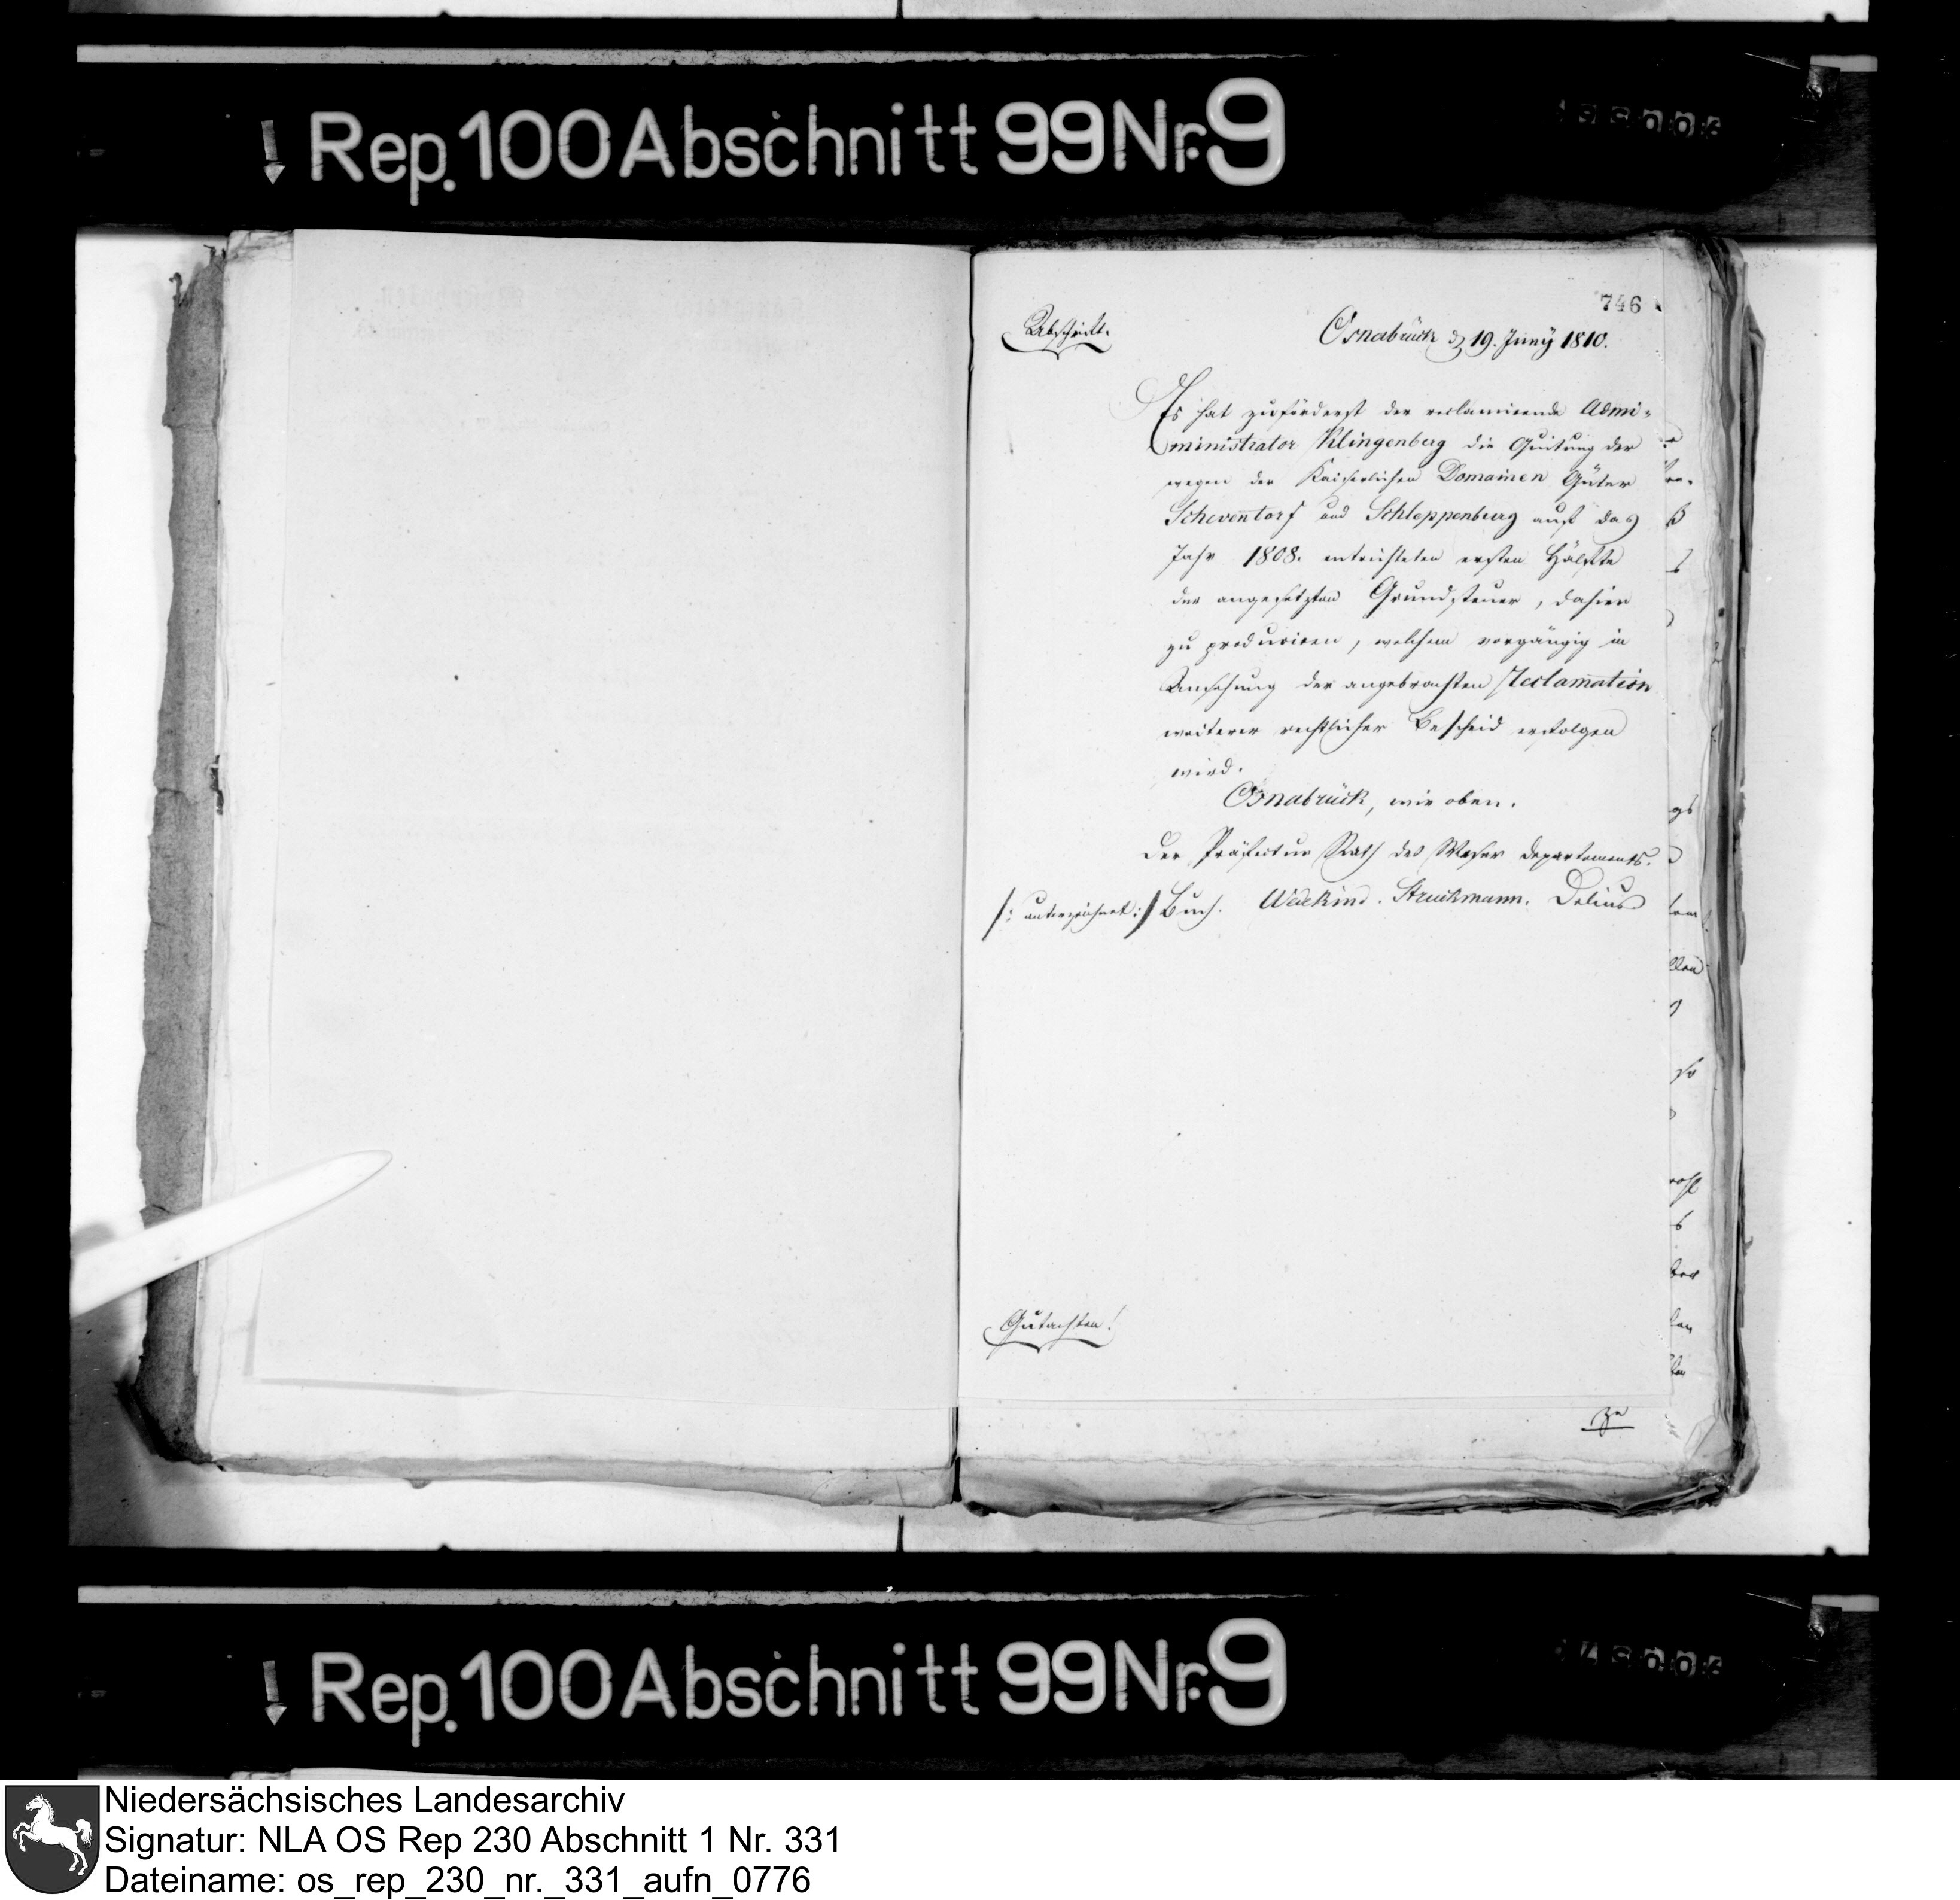 Rep. 100 Abschnitt 99 Nr. 9
746
Abschrift.
Osnabrück d 19. Juny 1810.
Es hat zuförderst der reclamirende Admi-
ministrator Klingenberg die Quitung der
wegen der Kaiserlichen Domainen Güter
Scheventorf und Schleppenburg auf das
Jahr 1808. entrichteten ersten Hälfte
der angesetzten Grundsteuer, dahier
zu produciren, welchem vorgängig in
Ansehung der angebrachten Reclamation
weiterer rechtlicher Bescheid erfolgen
wird.
Osnabrück, wie oben.
Der Präfectur Rath des Weser departements.
/: unterzeichnet :/ Buch. Wedekind. Struckmann. Delius
Gutachten!
Rep. 100 Abschnitt 99 Nr. 9
Niedersächsisches Landesarchiv
Signatur: NLA OS Rep 230 Abschnitt 1 Nr. 331
Dateiname: os_rep_230_nr._331_aufn_0776